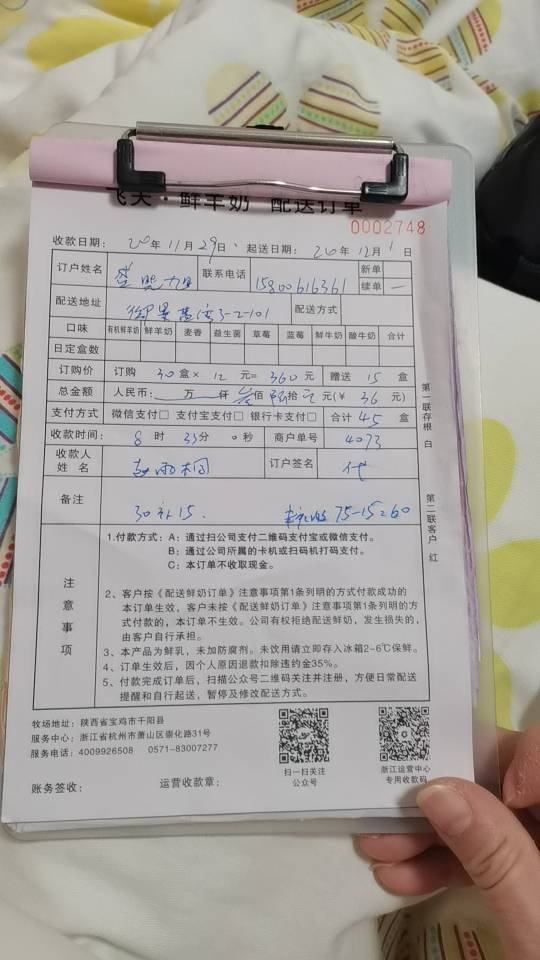 飞天·鲜羊奶 配送订单
0002748
收款日期： 20年11月29日 起送日期： 20年12月1日
订户姓名 联系电话 15800616361 新单
续单 一
配送地址 3-2-101 配送方式
口味 有机鲜羊奶 鲜羊奶 麦香 益生菌 草莓 蓝莓 鲜牛奶 酸牛奶 合计
日定盒数
订购价 订购 30 盒× 12 元= 360 元 赠送 15 盒
总金额 人民币： 万 仟 叁佰 陆拾 元(￥ 36 元)
支付方式 微信支付□ 支付宝支付□ 银行卡支付□ 合计 45 盒
收款时间： 8 时 33分 0秒 商户单号 4073
收款人姓名 订户签名 代
备注 30补15. 75-15=60
注意事项
1.付款方式：A：通过扫公司支付二维码支付宝或微信支付。
B：通过公司所属的卡机或扫码机打码支付。
C：本订单不收取现金。
2、客户按《配送鲜奶订单》注意事项第1条列明的方式付款成功的
本订单生效，客户未按《配送鲜奶订单》注意事项第1条列明的方
式付款的，本订单不生效。公司有权拒绝配送鲜奶，发生损失的，
由客户自行承担。
3、本产品为鲜乳，未加防腐剂。未饮用请立即存入冰箱2-6℃保鲜。
4、订单生效后，因个人原因退款扣除违约金35%。
5、付款完成订单后，扫描公众号二维码关注并注册，方便日常配送
提醒和自行起送，暂停及修改配送方式。
第一联存根 白
第二联客户 红
牧场地址：陕西省宝鸡市千阳县
服务中心：浙江省杭州市萧山区崇化路31号
服务电话：4009926508 0571-83007277
扫一扫关注
公众号
浙江运营中心
专用收款码
账务签收： 运营收款章：